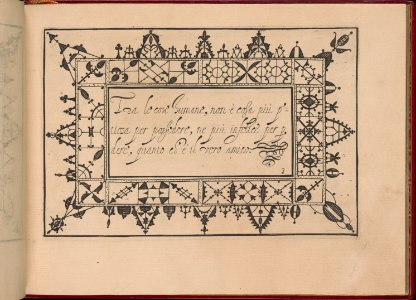 Tra le cose humane, non è cosa più p
tiosa per possedere, ne più infelice per p
dere, quanto ch'è il vero amico.
2